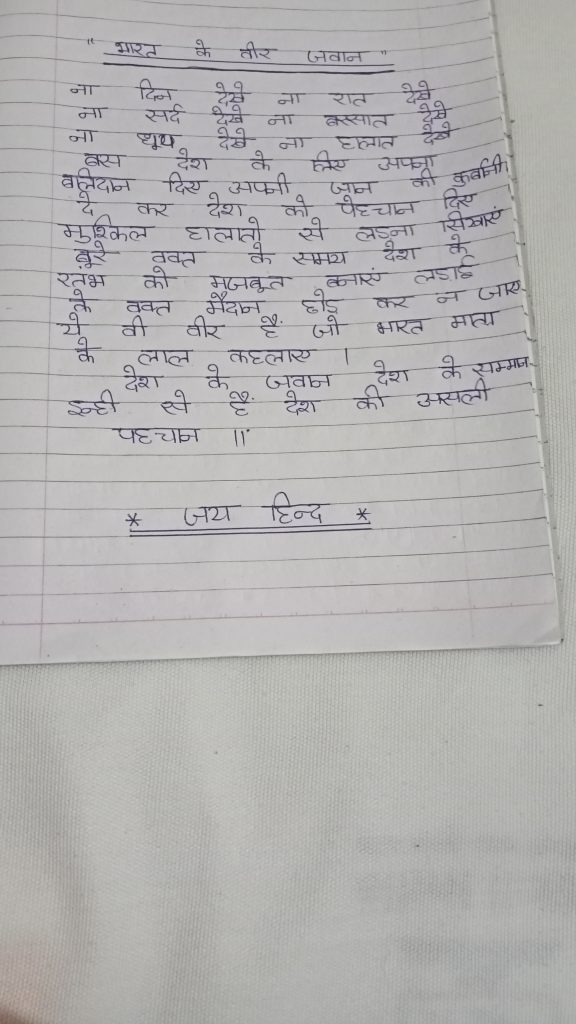 " भारत के वीर जवान "
ना दिन देखे ना रात देखे
ना सर्द देखे ना बरसात देखे
ना धूप देखे ना हालात देखे
बस देश के लिए अपना
बलिदान दिए अपनी जान की कुर्बानी
दे कर देश को पेहचान दिए
मुश्किल हालातो से लड़ना सिखाएं
बूरे वक्त के समय देश के
स्तंभ को मजबूत बनाएं लड़ाई
के वक्त मैदान छोड़ कर न जाए
ये वी वीर हैं जो भारत माता
के लाल कहलाए ।
देश के जवान देश के सम्मान
इन्ही से हैं देश की असली
पहचान ॥
* जय हिन्द *